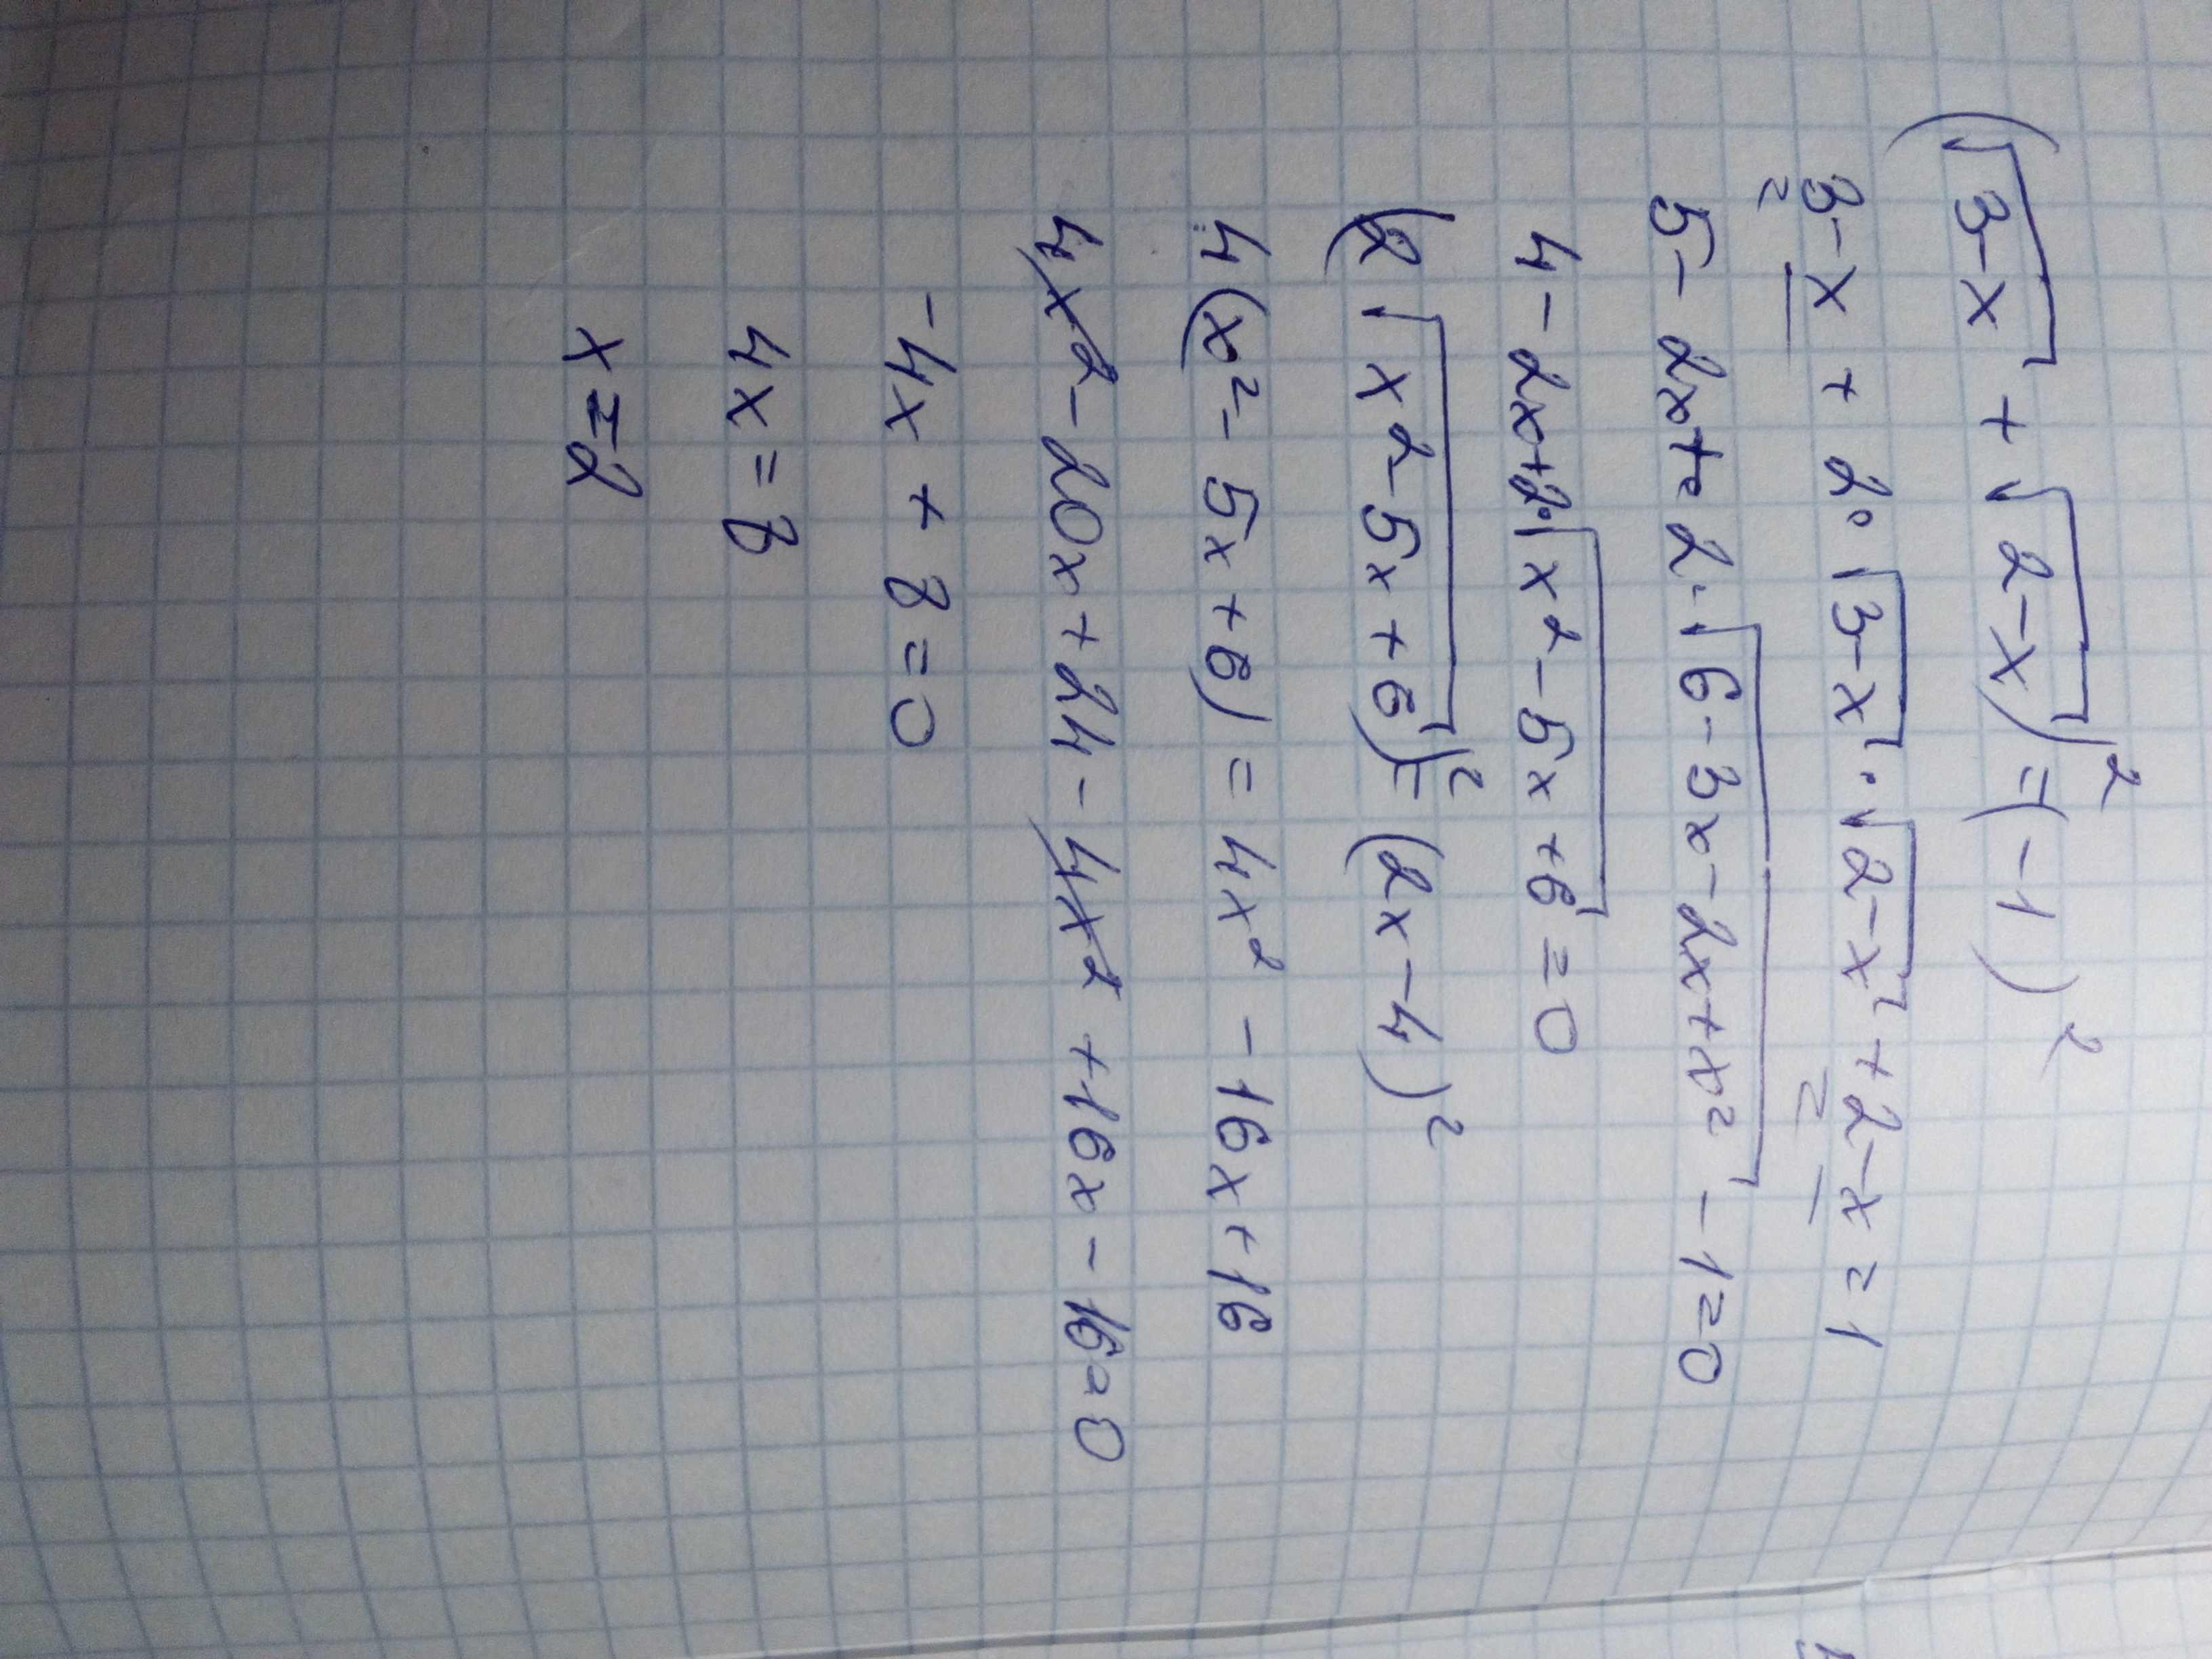 (√(3-x) + √(2-x))² = (-1)²
3-x + 2·√(3-x)·√(2-x) + 2-x = 1
5-2x+2·√(6-3x-2x+x²) -1=0
4-2x+2·√(x²-5x+6) =0
(2√(x²-5x+6))²=(2x-4)²
4(x²-5x+6)=4x²-16x+16
4x²-20x+24-4x²+16x-16=0
-4x+8=0
4x=8
x=2